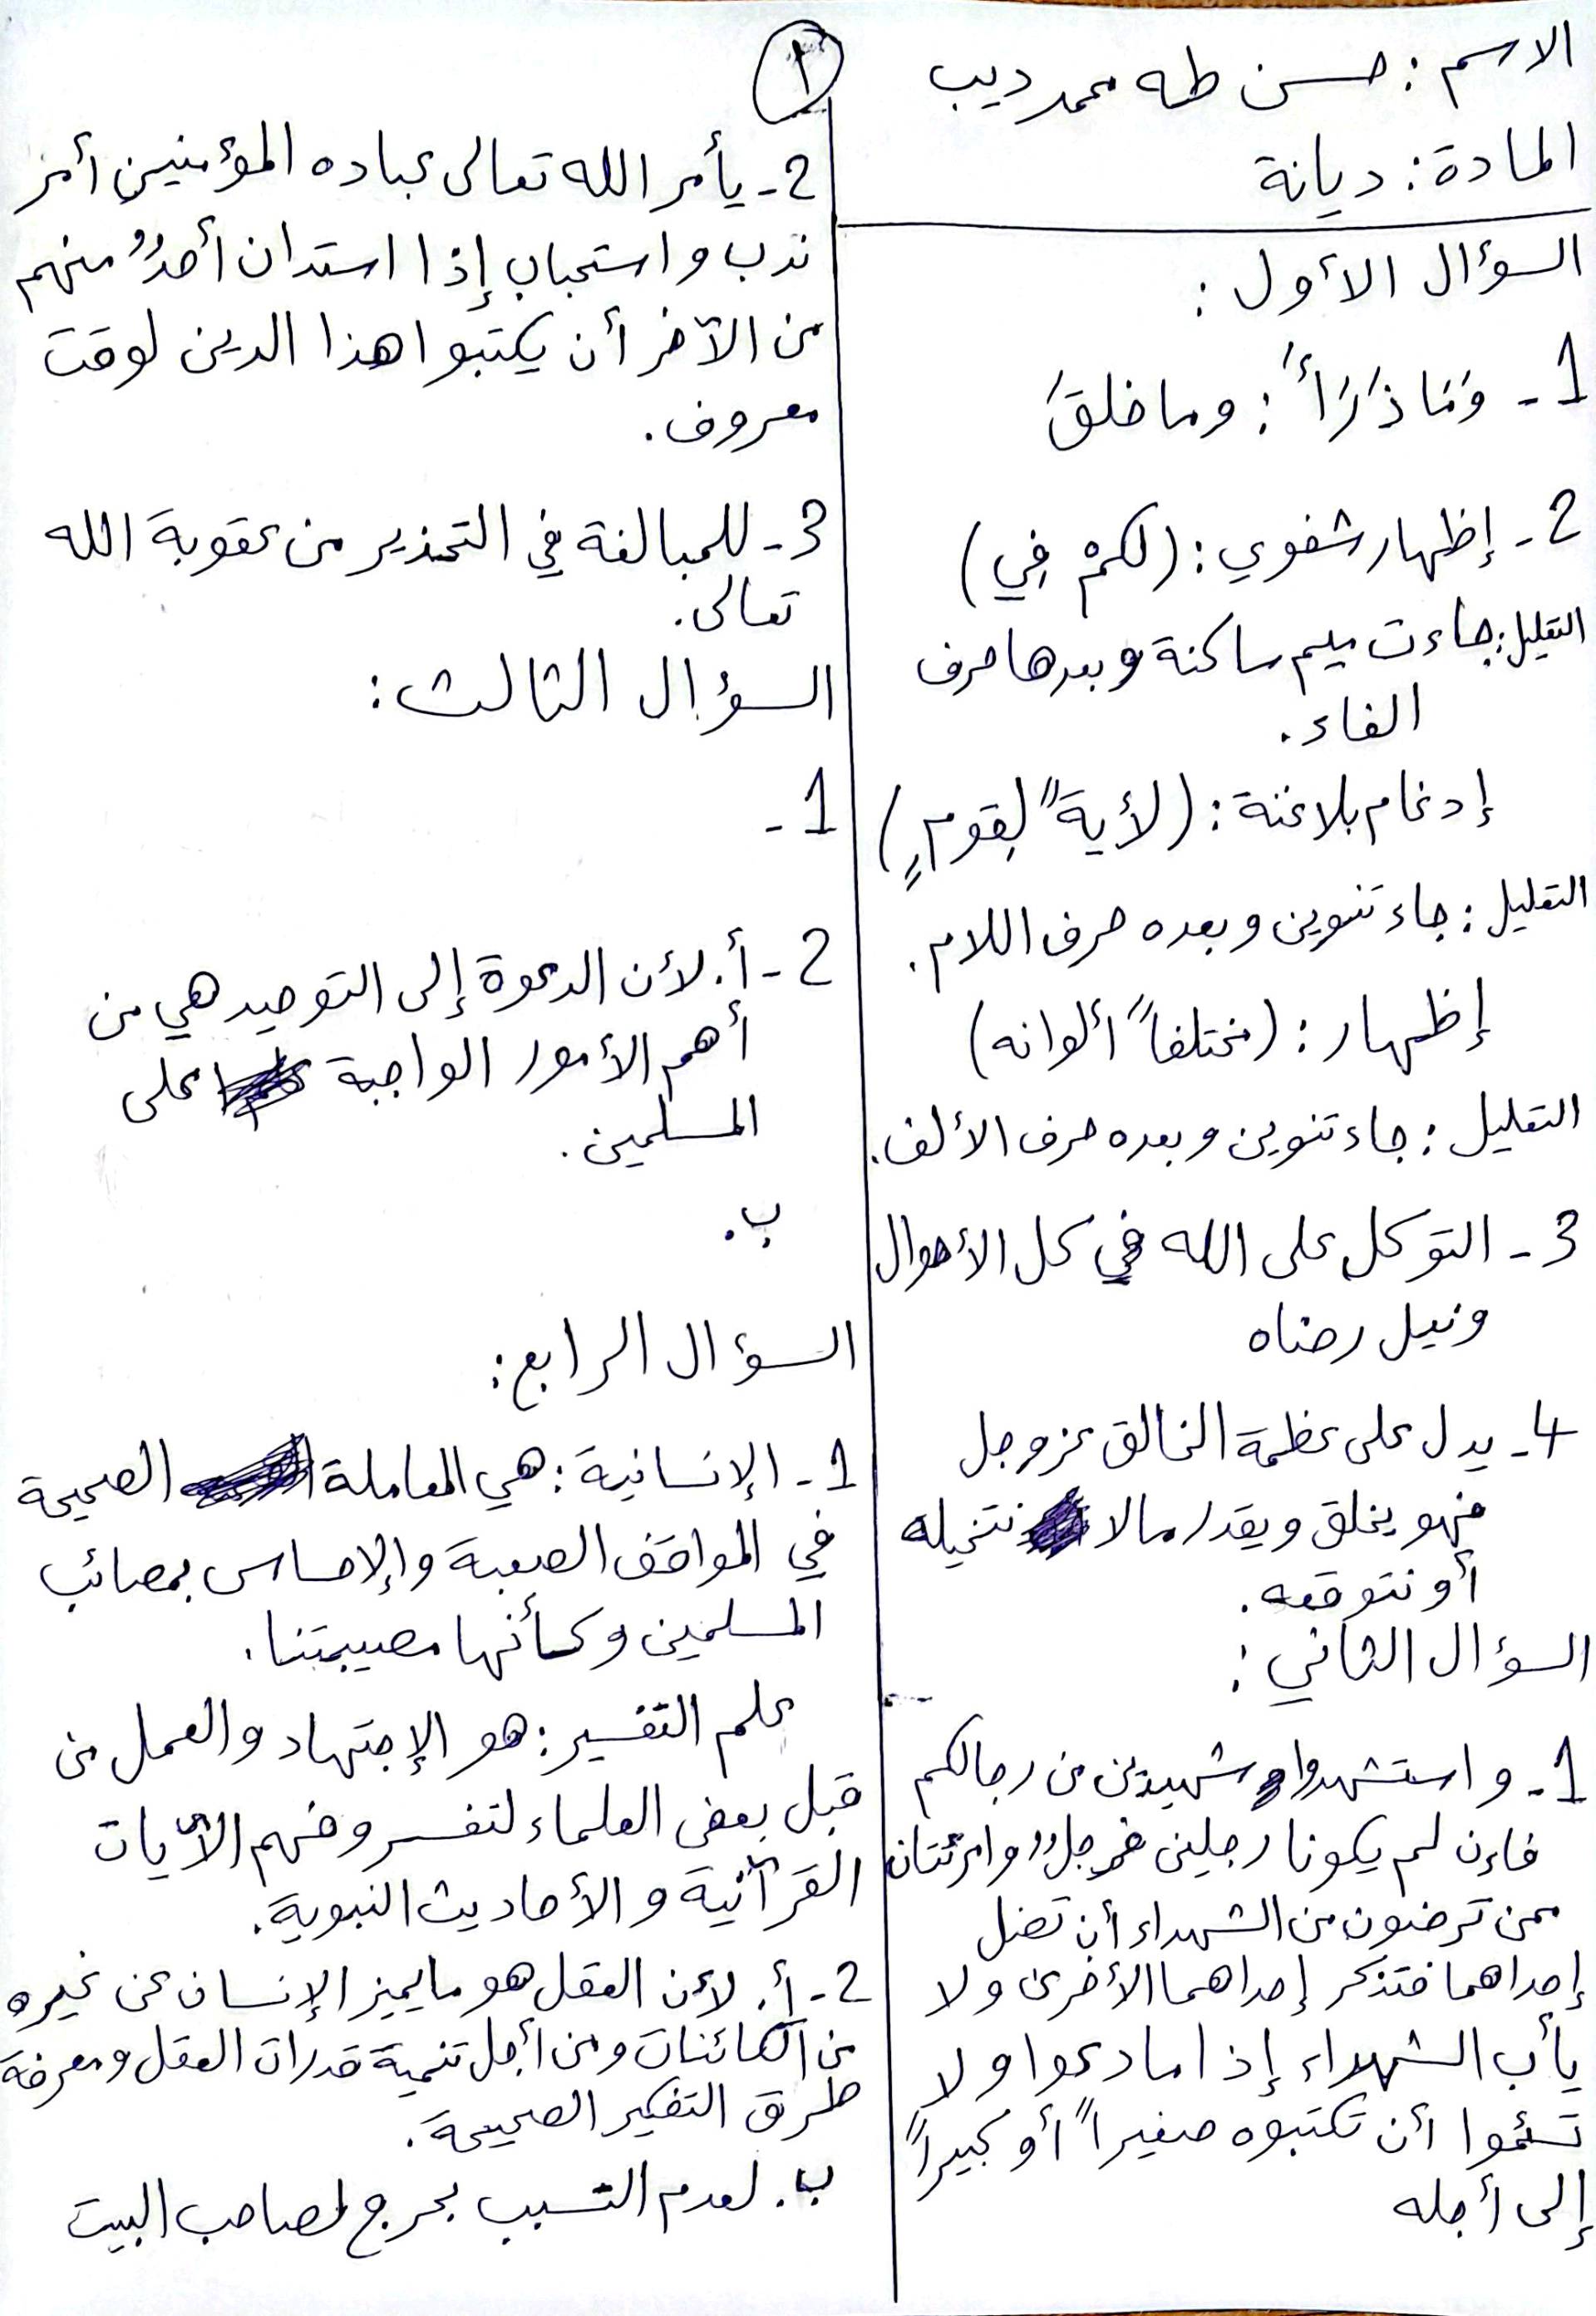 الاسم : حسن طه محمد ديب
المادة : ديانة
السؤال الأول :
1- وَمَا ذَرَأَ : وما خلقَ
2- إظهار شفوي : (لكمْ فِي)
التعليل : جاءت ميم ساكنة وبعدها حرف
الفاء .
إدغام بلا غنة : (لأيةً لِقومٍ)
التعليل : جاء تنوين وبعده حرف اللام .
إظهار : (مختلفاً ألوانه)
التعليل : جاء تنوين وبعده حرف الألف .
3- التوكل على الله في كل الأحوال
ونيل رضاه
4- يدل على عظمة الخالق عز وجل
فهو يخلق ويقدر مالا نتخيله
أو نتوقعه .
السؤال الثاني :
1- واستشهدوا شهيدين من رجالكم
فإن لم يكونا رجلين فرجلٌ وامرئتان
ممن ترضون من الشهداء أن تضل
إحداهما فتذكر إحداهما الأخرى ولا
يأب الشهداء إذا ما دعوا ولا
تسئموا أن تكتبوه صغيراً أو كبيراً
إلى أجله
١
2- يأمر الله تعالى عباده المؤمنين أمر
ندب واستحباب إذا استدان أحدٌ منهم
من الآخر أن يكتبوا هذا الدين لوقت
معروف .
3- للمبالغة في التحذير من عقوبة الله
تعالى .
السؤال الثالث :
1-
2- أ. لأن الدعوة إلى التوحيد هي من
أهم الأمور الواجبة على
المسلمين .
ب.
السؤال الرابع :
1- الإنسانية : هي المعاملة الصحيحة
في المواقف الصعبة والإحساس بمصائب
المسلمين وكأنها مصيبتنا .
علم التفسير : هو الإجتهاد والعمل من
قبل بعض العلماء لتفسر وفهم الآيات
القرآنية والأحاديث النبوية .
2- أ. لأن العقل هو ما يميز الإنسان عن غيره
من الكائنات ومن أجل تنمية قدرات العقل ومعرفة
طرق التفكير الصحيحة .
ب. لعدم التسبب بحرج لصاحب البيت